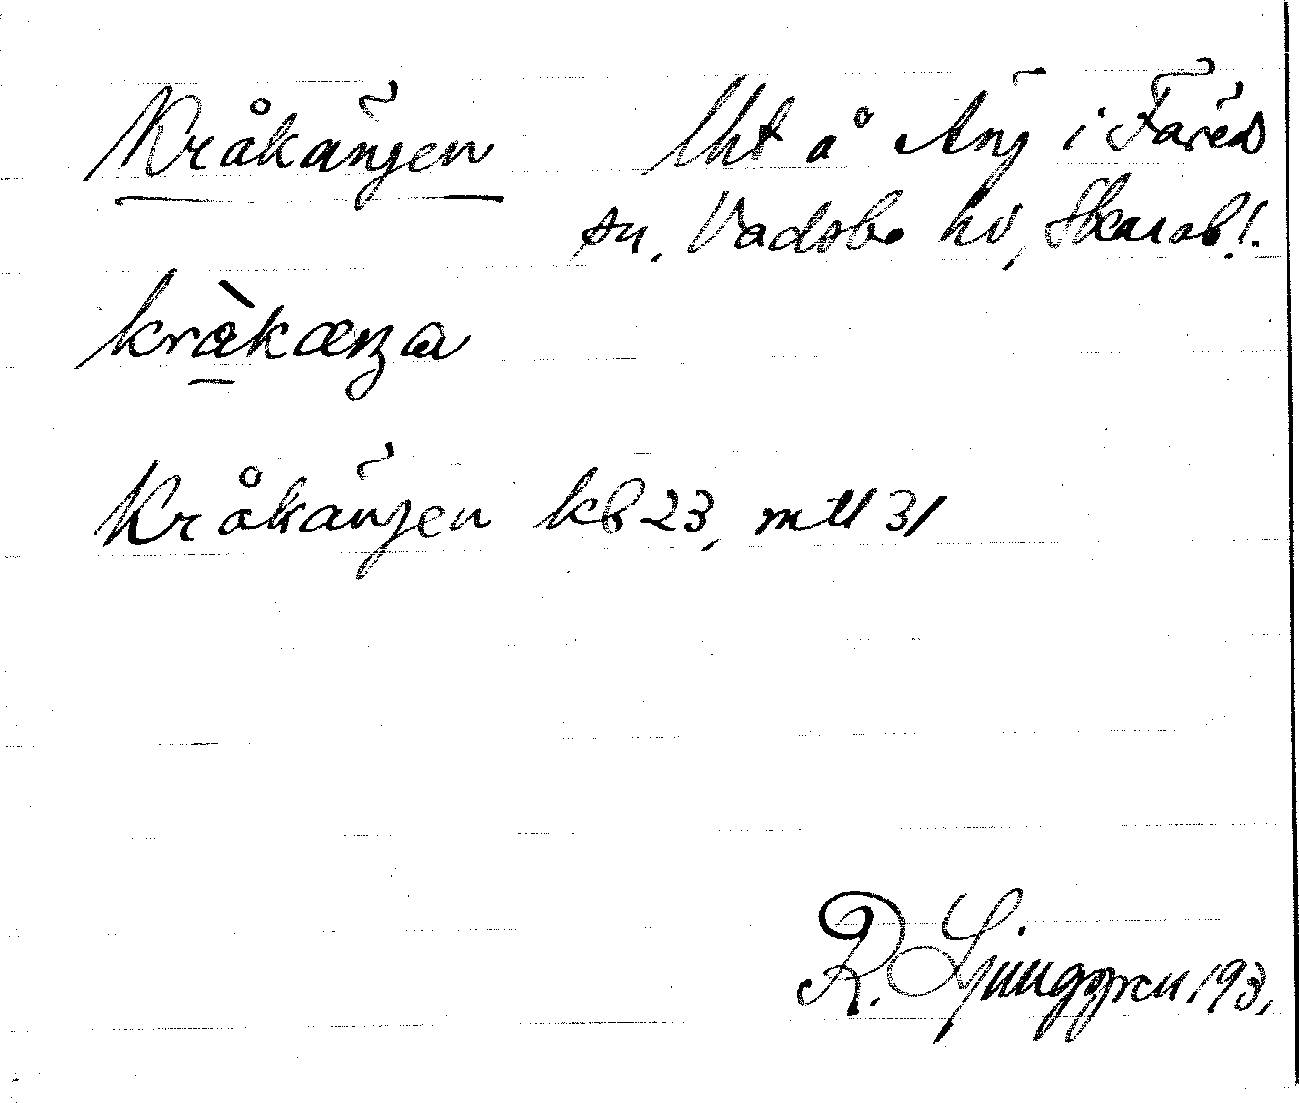 Kråkängen Uht å Äng i Färeds
sn, Vadsbo hd, Skarab.l.
kråkæŋa
Kråkängen kb 23, mtl 31
R. Ljunggren 1931